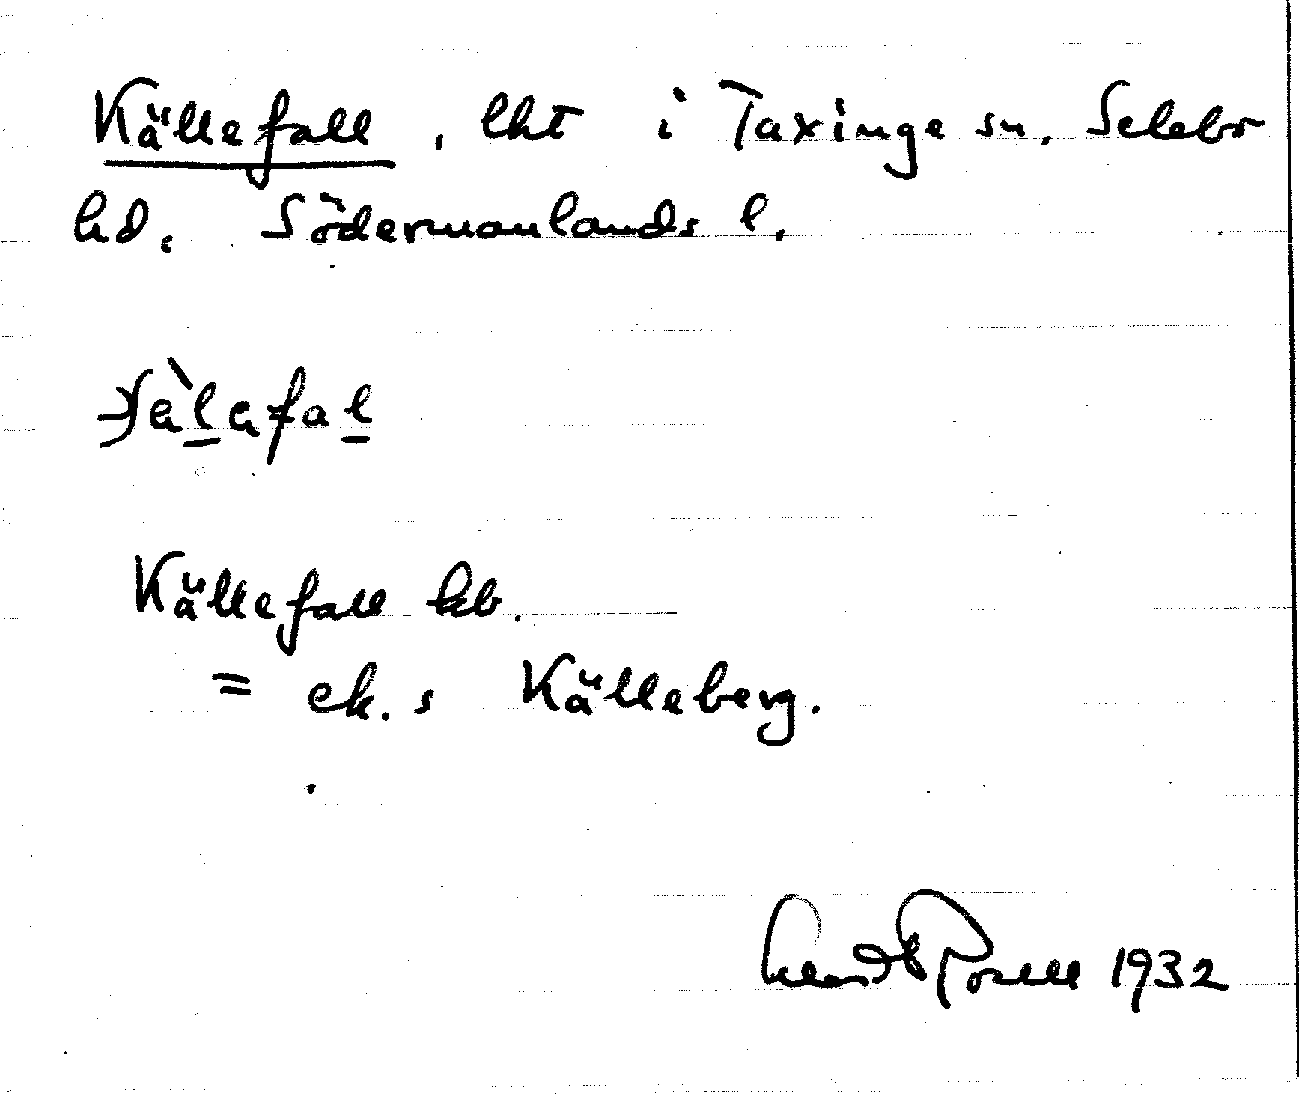 Källefall, lht i Taxinge sn. Selebo
hd. Södermanlands l.
Källefall kb.
= ek. s Källeberg.
Rosell 1932